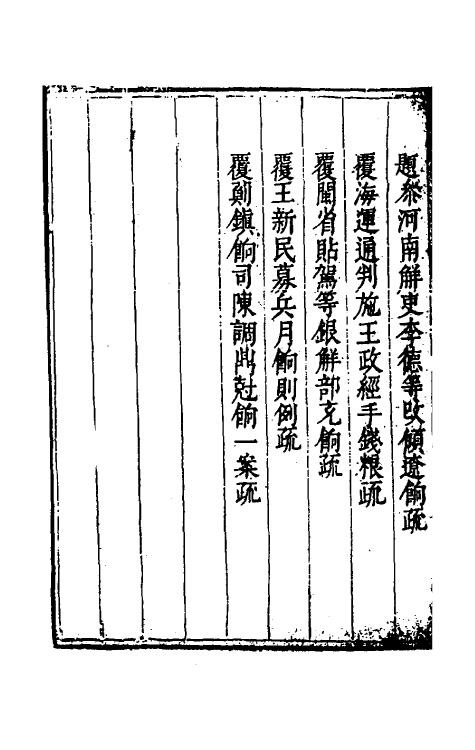 題參河南解吏李德等改傾遼餉疏
覆海運通判施王政經手錢粮疏
覆閩省貼駕等銀解部充餉疏
覆王新民募兵月餉則例疏
覆薊鎮餉司陳調鼎尅餉一案疏